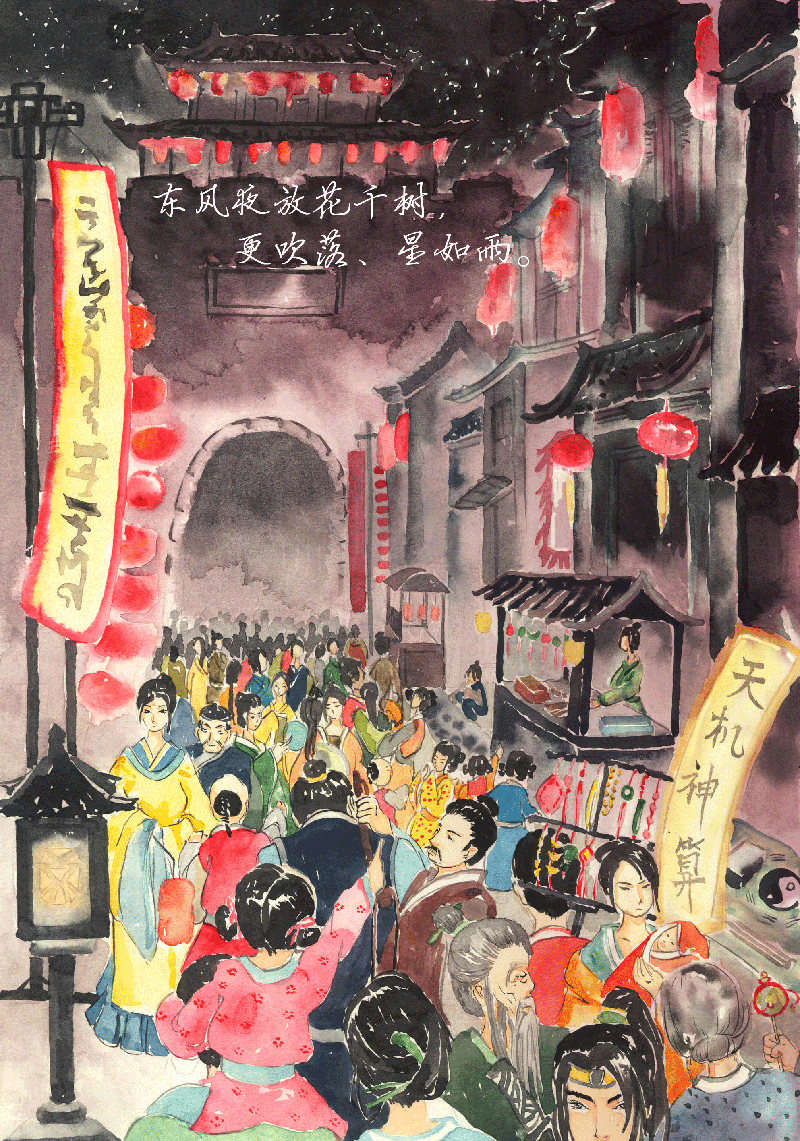 东风夜放花千树，
更吹落、星如雨。
天机神算